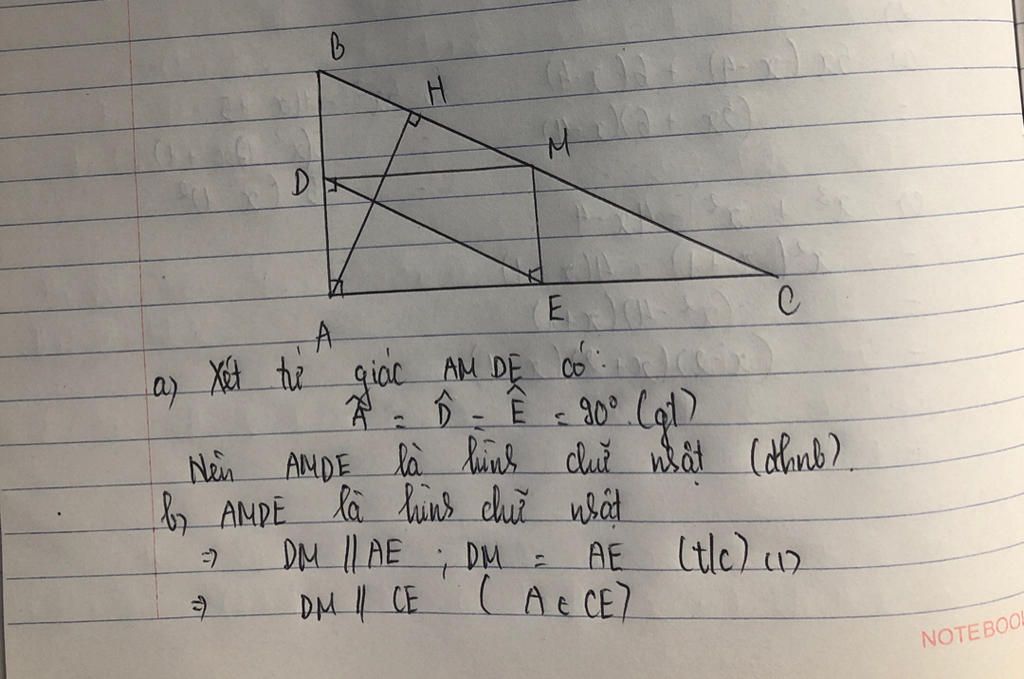 B
H
M
D
E
C
A
a, Xét tứ giác AMDE có:
Â = D̂ = Ê = 90° (gt)
Nên AMDE là hình chữ nhật (dhnb).
b, AMDE là hình chữ nhật
⇒ DM // AE ; DM = AE (t/c) (1)
⇒ DM // CE ( A ∈ CE)
NOTEBOO